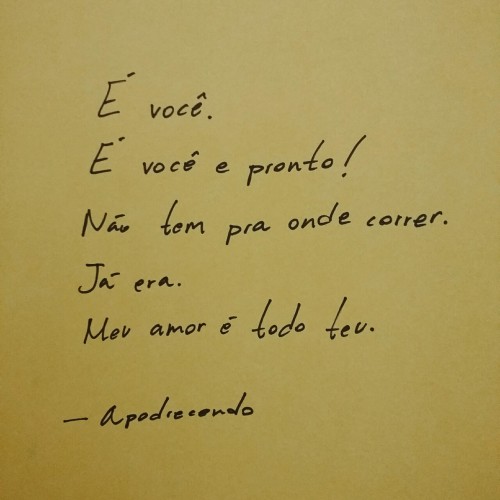 É você.
É você e pronto!
Não tem pra onde correr.
Já era.
Meu amor é todo teu.
— Apodrecendo